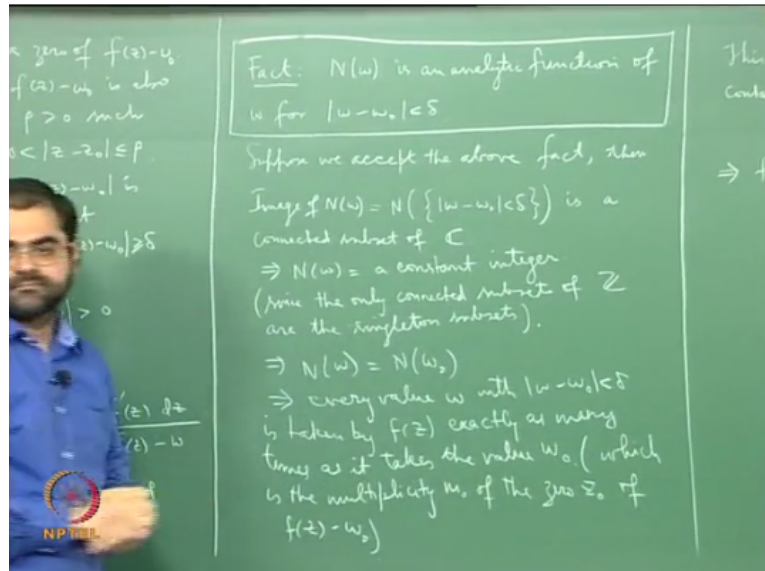 zero of f(z)-w₀.
f(z)-w₀ is also
ρ>0 such
0<|z-z₀|≤ρ.
(z)-w₀| is
(z)-w₀|≥δ
|>0
f'(z) dz
(z)-w
Fact: N(w) is an analytic function of
w for |w-w₀|<δ
Suppose we accept the above fact, then
Image of N(w) = N({|w-w₀|<δ}) is a
connected subset of ℂ
⇒ N(w) = a constant integer
(since the only connected subsets of ℤ
are the singleton subsets).
⇒ N(w) = N(w₀)
⇒ every value w with |w-w₀|<δ
is taken by f(z) exactly as many
times as it takes the value w₀. (which
is the multiplicity m₀ of the zero z₀ of
f(z)-w₀)
This
⇒
NPTEL